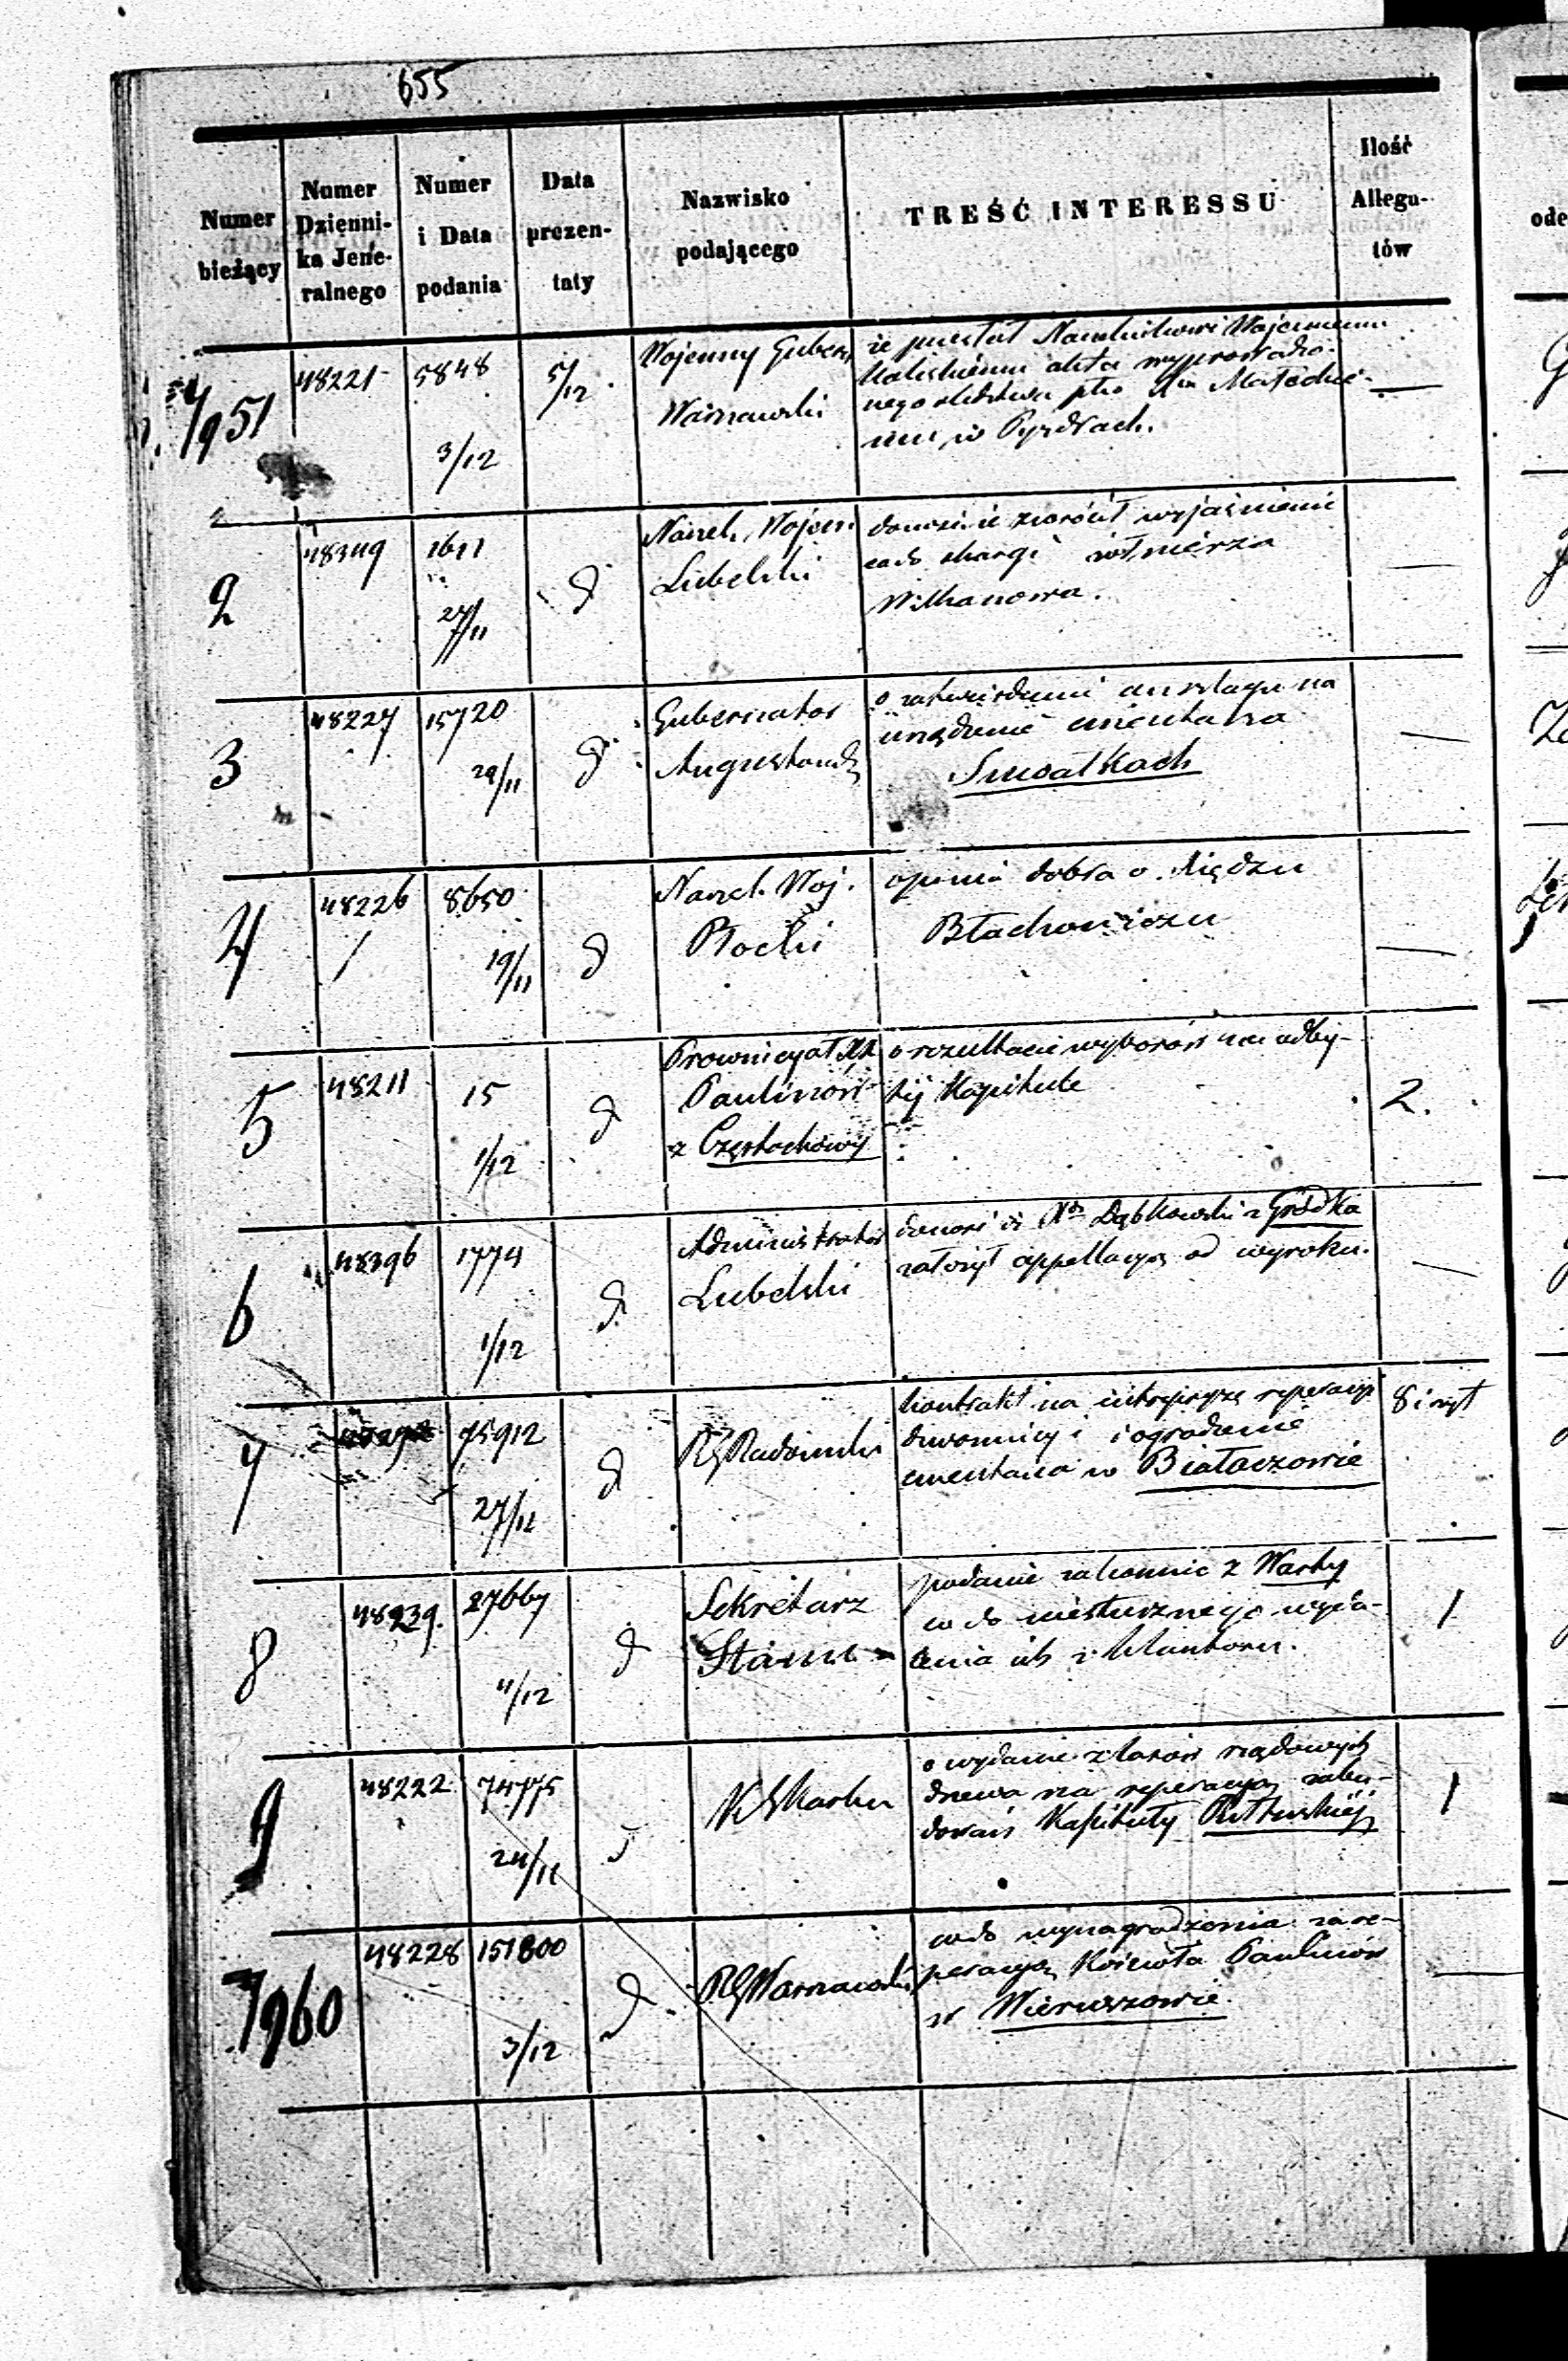 655
Numer bieżący
Numer Dzienni-ka Jene-ralnego
Numer i Data podania
Data prezen-taty
Nazwisko podającego
TREŚĆ INTERESSU
Ilość Allegu-tów
7951
48221
5848
3/12
5/12
Wojenny Guber.
Warszawski
że przesłał Naczelnikowi Wojennemu
Kaliskiemu akta wyprowadzo-
nego śledztwa
w Pyzdrach.
2
48349
1611
27/11
d
Naczel. Wojen.
Lubelski
donosi że zwrócił wyjaśnienie
co do skargi żołnierza
3
48227
15720
29/11
d
Gubernator
Augustowski
o zatwierdzenie anszlagu na
urządzenie cmentarza
Suwałkach
4
48226
8650
19/11
d
Naczel. Woj.
Płocki
opinia dobra o Księdzu
Błachowiczu
5
48211
15
1/12
d
Prowincyał XX
Paulinów
z Częstochowy
o rezultacie wyborów na odby-
téj Kapitule
2.
6
48396
1774
1/12
d
Administrator
Lubelski
donosi iż Xdz Dąbkowski z Gródka
założył appellacyą od wyroku.
7
75912
27/11
d
RG Radomski
kontrakt na entrepryzę reperacyi
dzwonnicy i ogrodzenie
cmentarza w Białaczowie
8 i ryt
8
48239.
27667
4/12
d
Sekretarz
Stanu
podanie zakonnic z Warty
co do niesłusznego wyda-
lenia ich z Klasztoru.
1
9
48222
74775
24/11
K Skarbu
o wydanie z lasów rządowych
drzewa na reperacyą zabu-
dowań Kapituły Pułtuskiéj
1
7960
48228
151800
3/12
d
RG Warszawski
co do wynagrodzenia za re-
peracyą Kościoła Paulinów
w Wieruszowie.